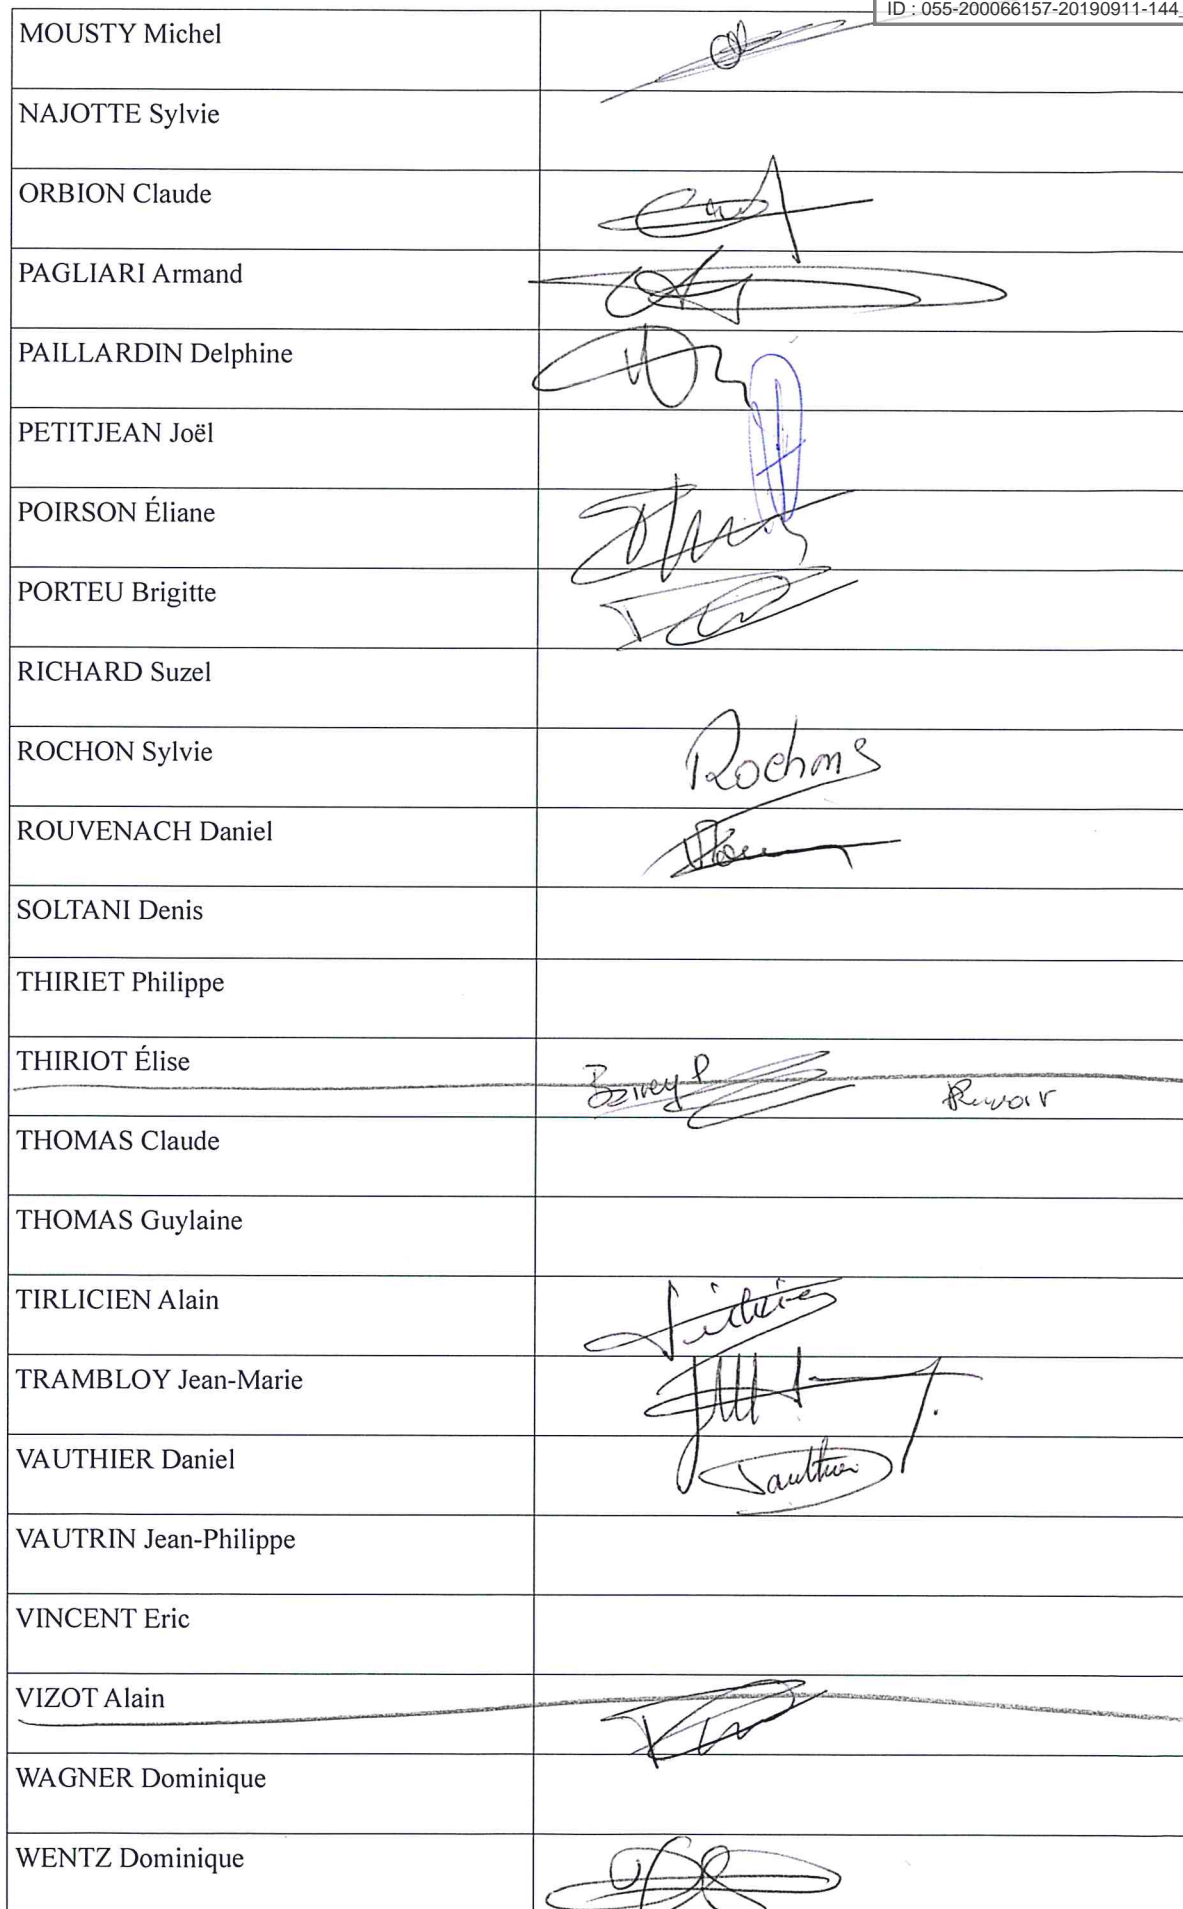 ID : 055-200066157-20190911-144
MOUSTY Michel
NAJOTTE Sylvie
ORBION Claude
PAGLIARI Armand
PAILLARDIN Delphine
PETITJEAN Joël
POIRSON Éliane
PORTEU Brigitte
RICHARD Suzel
ROCHON Sylvie
Rochon S
ROUVENACH Daniel
SOLTANI Denis
THIRIET Philippe
THIRIOT Élise
THOMAS Claude
THOMAS Guylaine
TIRLICIEN Alain
TRAMBLOY Jean-Marie
VAUTHIER Daniel
Vauthier
VAUTRIN Jean-Philippe
VINCENT Eric
VIZOT Alain
WAGNER Dominique
WENTZ Dominique